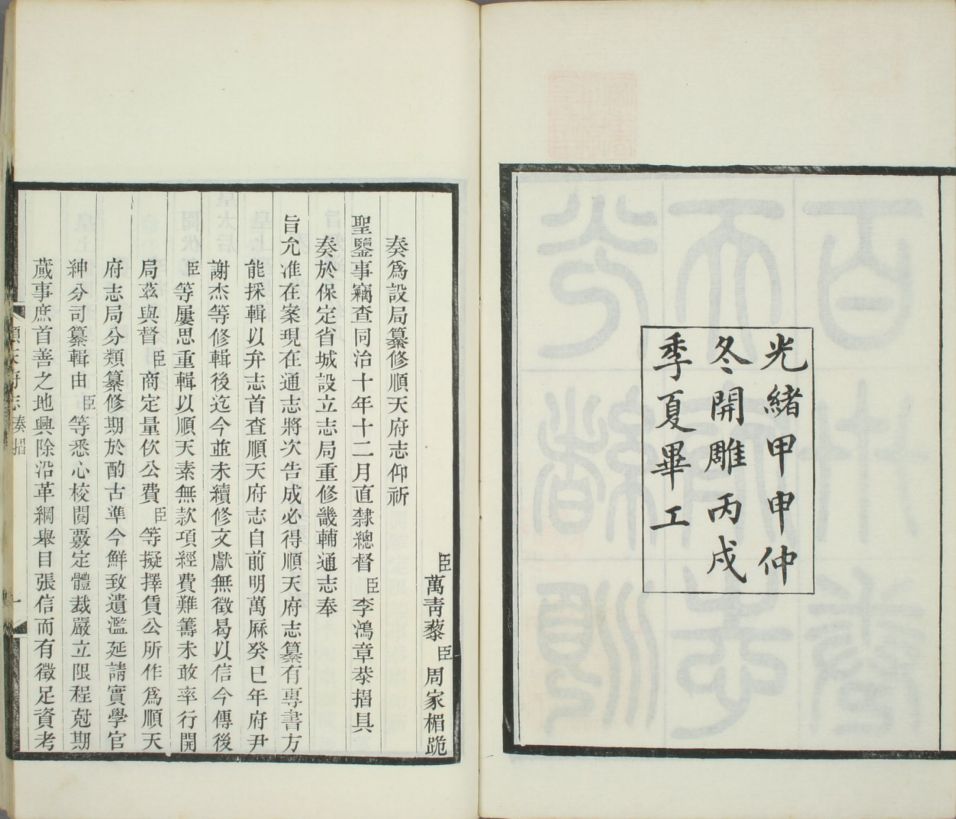 光緒甲申仲
冬開雕丙戌
季夏畢工
臣萬青藜臣周家楣跪
奏爲設局纂修順天府志仰祈
聖鑒事竊查同治十年十二月直隸總督臣李鴻章恭摺具
奏於保定省城設立志局重修畿輔通志奉
旨允准在案現在通志將次告成必得順天府志纂有專書方
能採輯以弁志首查順天府志自前明萬厤癸巳年府尹
謝杰等修輯後迄今並未續修文獻無徵曷以信今傳後
臣等屢思重輯以順天素無款項經費難籌未敢率行開
局茲與督臣商定量佽公費臣等擬擇賃公所作爲順天
府志局分類纂修期於酌古準今鮮致遺濫延請實學官
紳分司纂輯由臣等悉心校閱覈定體裁嚴立限程尅期
蕆事庶首善之地興除沿革綱舉目張信而有徵足資考
順天府志 奏摺
一